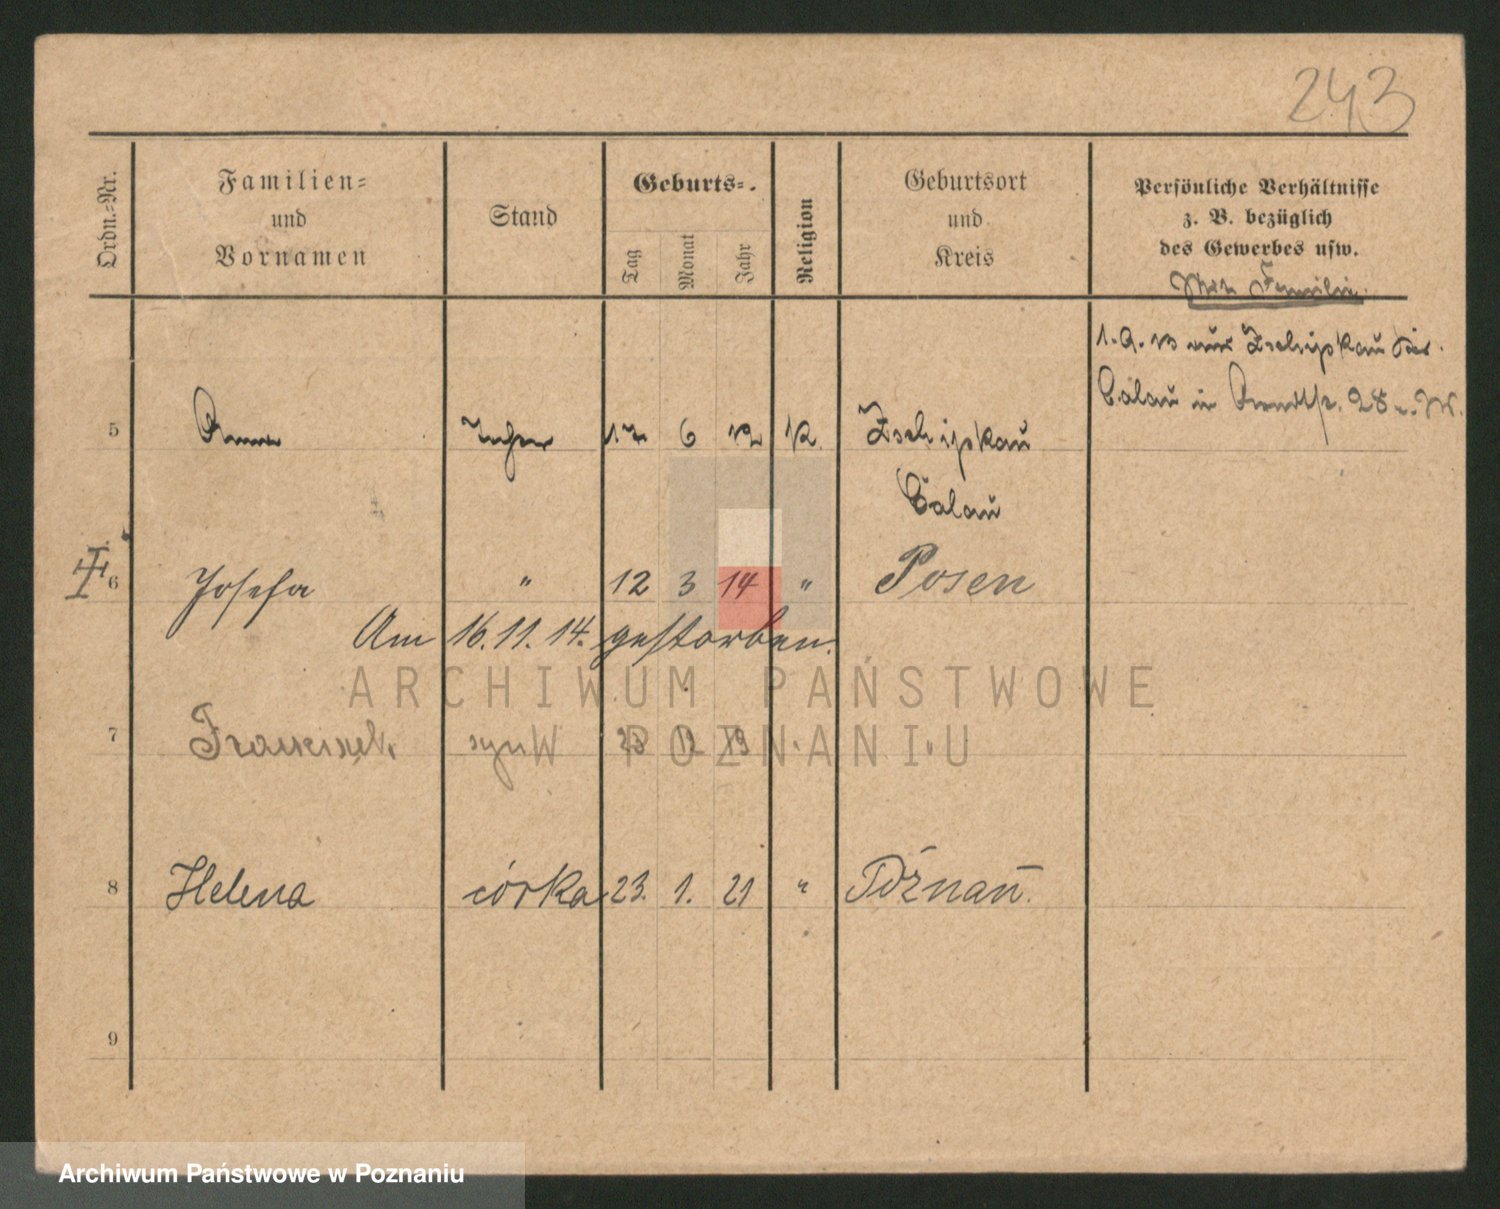 243
Ordn.-Nr.
Familien-
und
Vornamen
Stand
Geburts-.
Tag
Monat
Jahr
Religion
Geburtsort
und
Kreis
Persönliche Verhältnisse
z. B. bezüglich
des Gewerbes usw.
Familie
1. 9. 13 aus Zschipkau Krs.
Calau in 28
5 Anna Tochter 17 6 12 K. Zschipkau
Calau
6 Josefa " 12 3 14 " Posen
Am 16. 11. 14. gestorben.
7 Franciszek syn 23 12 19 " "
8 Helena córka 23. 1. 21 " Poznań.
9
ARCHIWUM PAŃSTWOWE
W POZNANIU
Archiwum Państwowe w Poznaniu